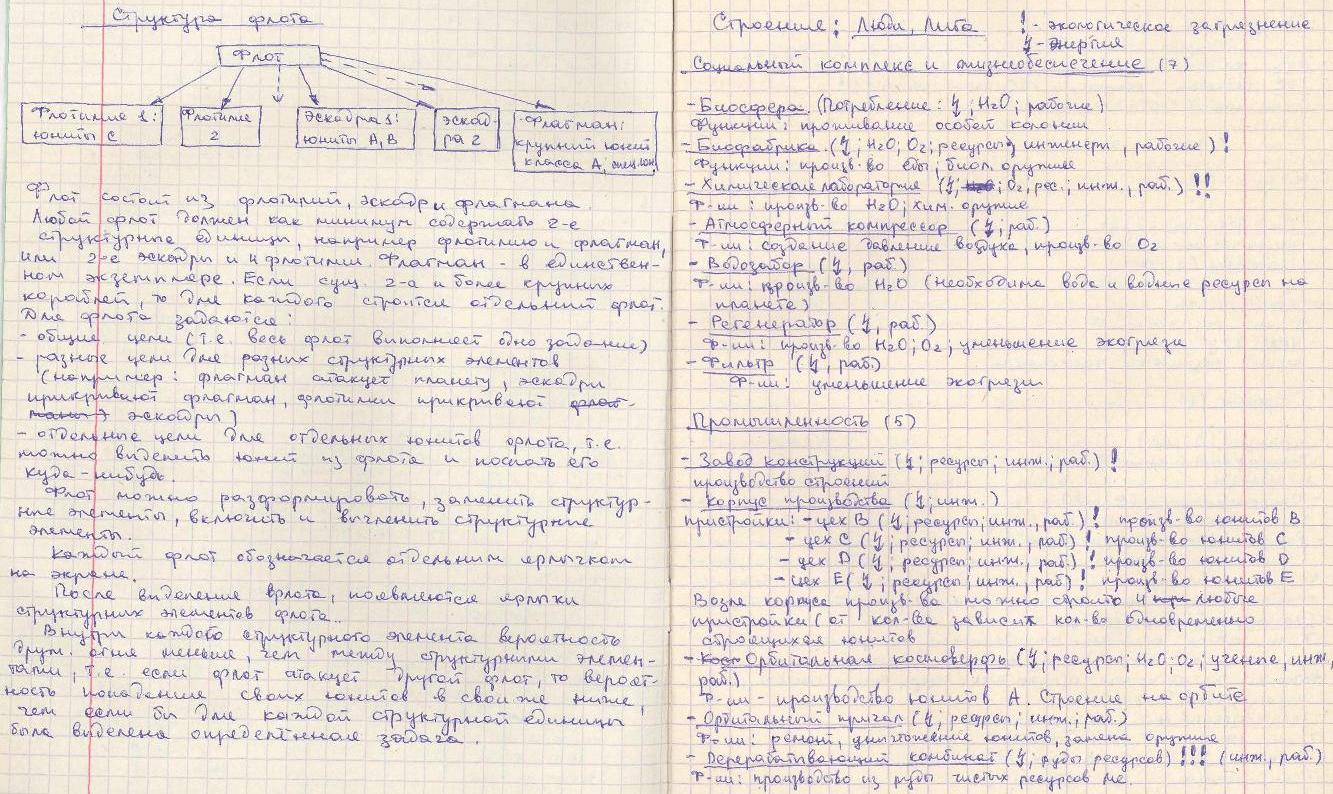 Структура флота
Флот
Флотилия 1:
юниты С
Флотилия
2
Эскадра 1:
юниты А, В
эскад-
ра 2
Флагман:
крупный юнит
класса А, спец. юн.
Флот состоит из флотилий, эскадр и флагмана.
Любой флот должен как минимум содержать 2-е
структурные единицы, например флотилию и флагман,
или 2-е эскадры и 4 флотилии. Флагман - в единствен-
ном экземпляре. Если сущ. 2-а и более крупных
кораблей, то для каждого строится отдельный флот.
Для флота задаются:
- общие цели (т.е. весь флот выполняет одно задание)
- разные цели для разных структурных элементов
(например: флагман атакует планету, эскадры
прикрывают флагман, флотилии прикрывают
эскадры)
- отдельные цели для отдельных юнитов флота, т.е.
можно выделить юнит из флота и послать его
куда-нибудь.
Флот можно расформировать, заменить структур-
ные элементы, включить и вычленить структурные
элементы.
Каждый флот обозначается отдельным ярлычком
на экране.
После выделения флота, появляются ярлыки
структурных элементов флота.
Внутри каждого структурного элемента вероятность
друж. огня меньше, чем между структурными элемен-
тами, т.е. если флот атакует другой флот, то вероят-
ность попадания своих юнитов в свои же ниже,
чем если бы для каждой структурной единицы
была выделена определённая задача.
Строение: Люди, Лита ! - экологическое загрязнение
↯ - энергия
Социальный комплекс и жизнеобеспечение (7)
- Биосфера (Потребление: ↯; H₂O; рабочие)
Функции: проживание особей колонии
- Биофабрика (↯; H₂O; O₂; ресурсы; инженеры, рабочие) !
Функции: произв-во еды, биол. оружия
- Химическая лаборатория (↯; O₂, рес.; инж., раб.) !!
Ф-ии: произв-во H₂O; хим. оружие
- Атмосферный компрессор (↯; раб.)
Ф-ии: создание давления воздуха, произв-во O₂
- Водозабор (↯, раб.)
Ф-ии: произв-во H₂O (необходима вода и водные ресурсы на
планете)
- Регенератор (↯, раб.)
Ф-ии: произв-во H₂O; O₂; уменьшение экогрязи
- Фильтр (↯, раб.)
Ф-ии: уменьшение экогрязи
Промышленность (5)
- Завод конструкций (↯; ресурсы; инж.; раб.) !
производство строений
- Корпус производства (↯; инж.)
пристройки: - цех В (↯; ресурсы; инж., раб.) ! произв-во юнитов В
- цех С (↯; ресурсы; инж., раб.) ! произв-во юнитов С
- цех D (↯; ресурсы; инж., раб.) ! произв-во юнитов D
- цех E (↯; ресурсы; инж., раб) ! произв-во юнитов E
Возле корпуса произв-ва можно строить 4 любые
пристройки (от кол-ва зависит кол-во одновременно
строящихся юнитов
- Орбитальная космоверфь (↯; ресурсы; H₂O; O₂; ученые, инж.,
раб.)
Ф-ии - производство юнитов А. Строение на орбите
- Орбитальный причал (↯; ресурсы; инж.; раб.)
Ф-ии: ремонт, уничтожение юнитов, замена оружия
- Перерабатывающий комбинат (↯; руды ресурсов) !!! (инж., раб.)
Ф-ии: производство из руды чистых ресурсов Ме.